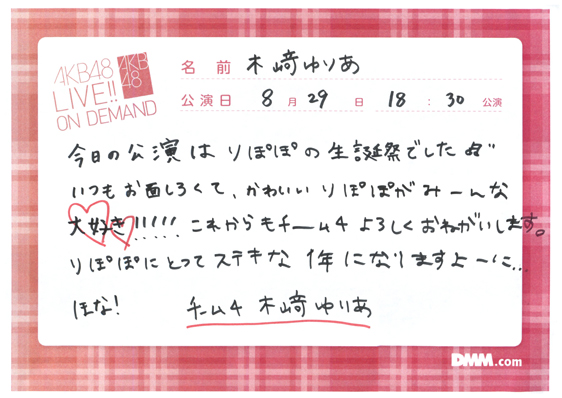 AKB48
LIVE!!
ON DEMAND
AKB
48
名前 木﨑ゆりあ
公演日 8月29日 18:30公演
今日の公演は りぽぽの生誕祭でした
いつもお面しろくて、かわいい りぽぽがみーんな
大好き!!!!! これからもチーム4 よろしくおねがいします。
りぽぽにとってステキな 1年になりますよーに...
ほな!
チーム4 木﨑ゆりあ
DMM.com